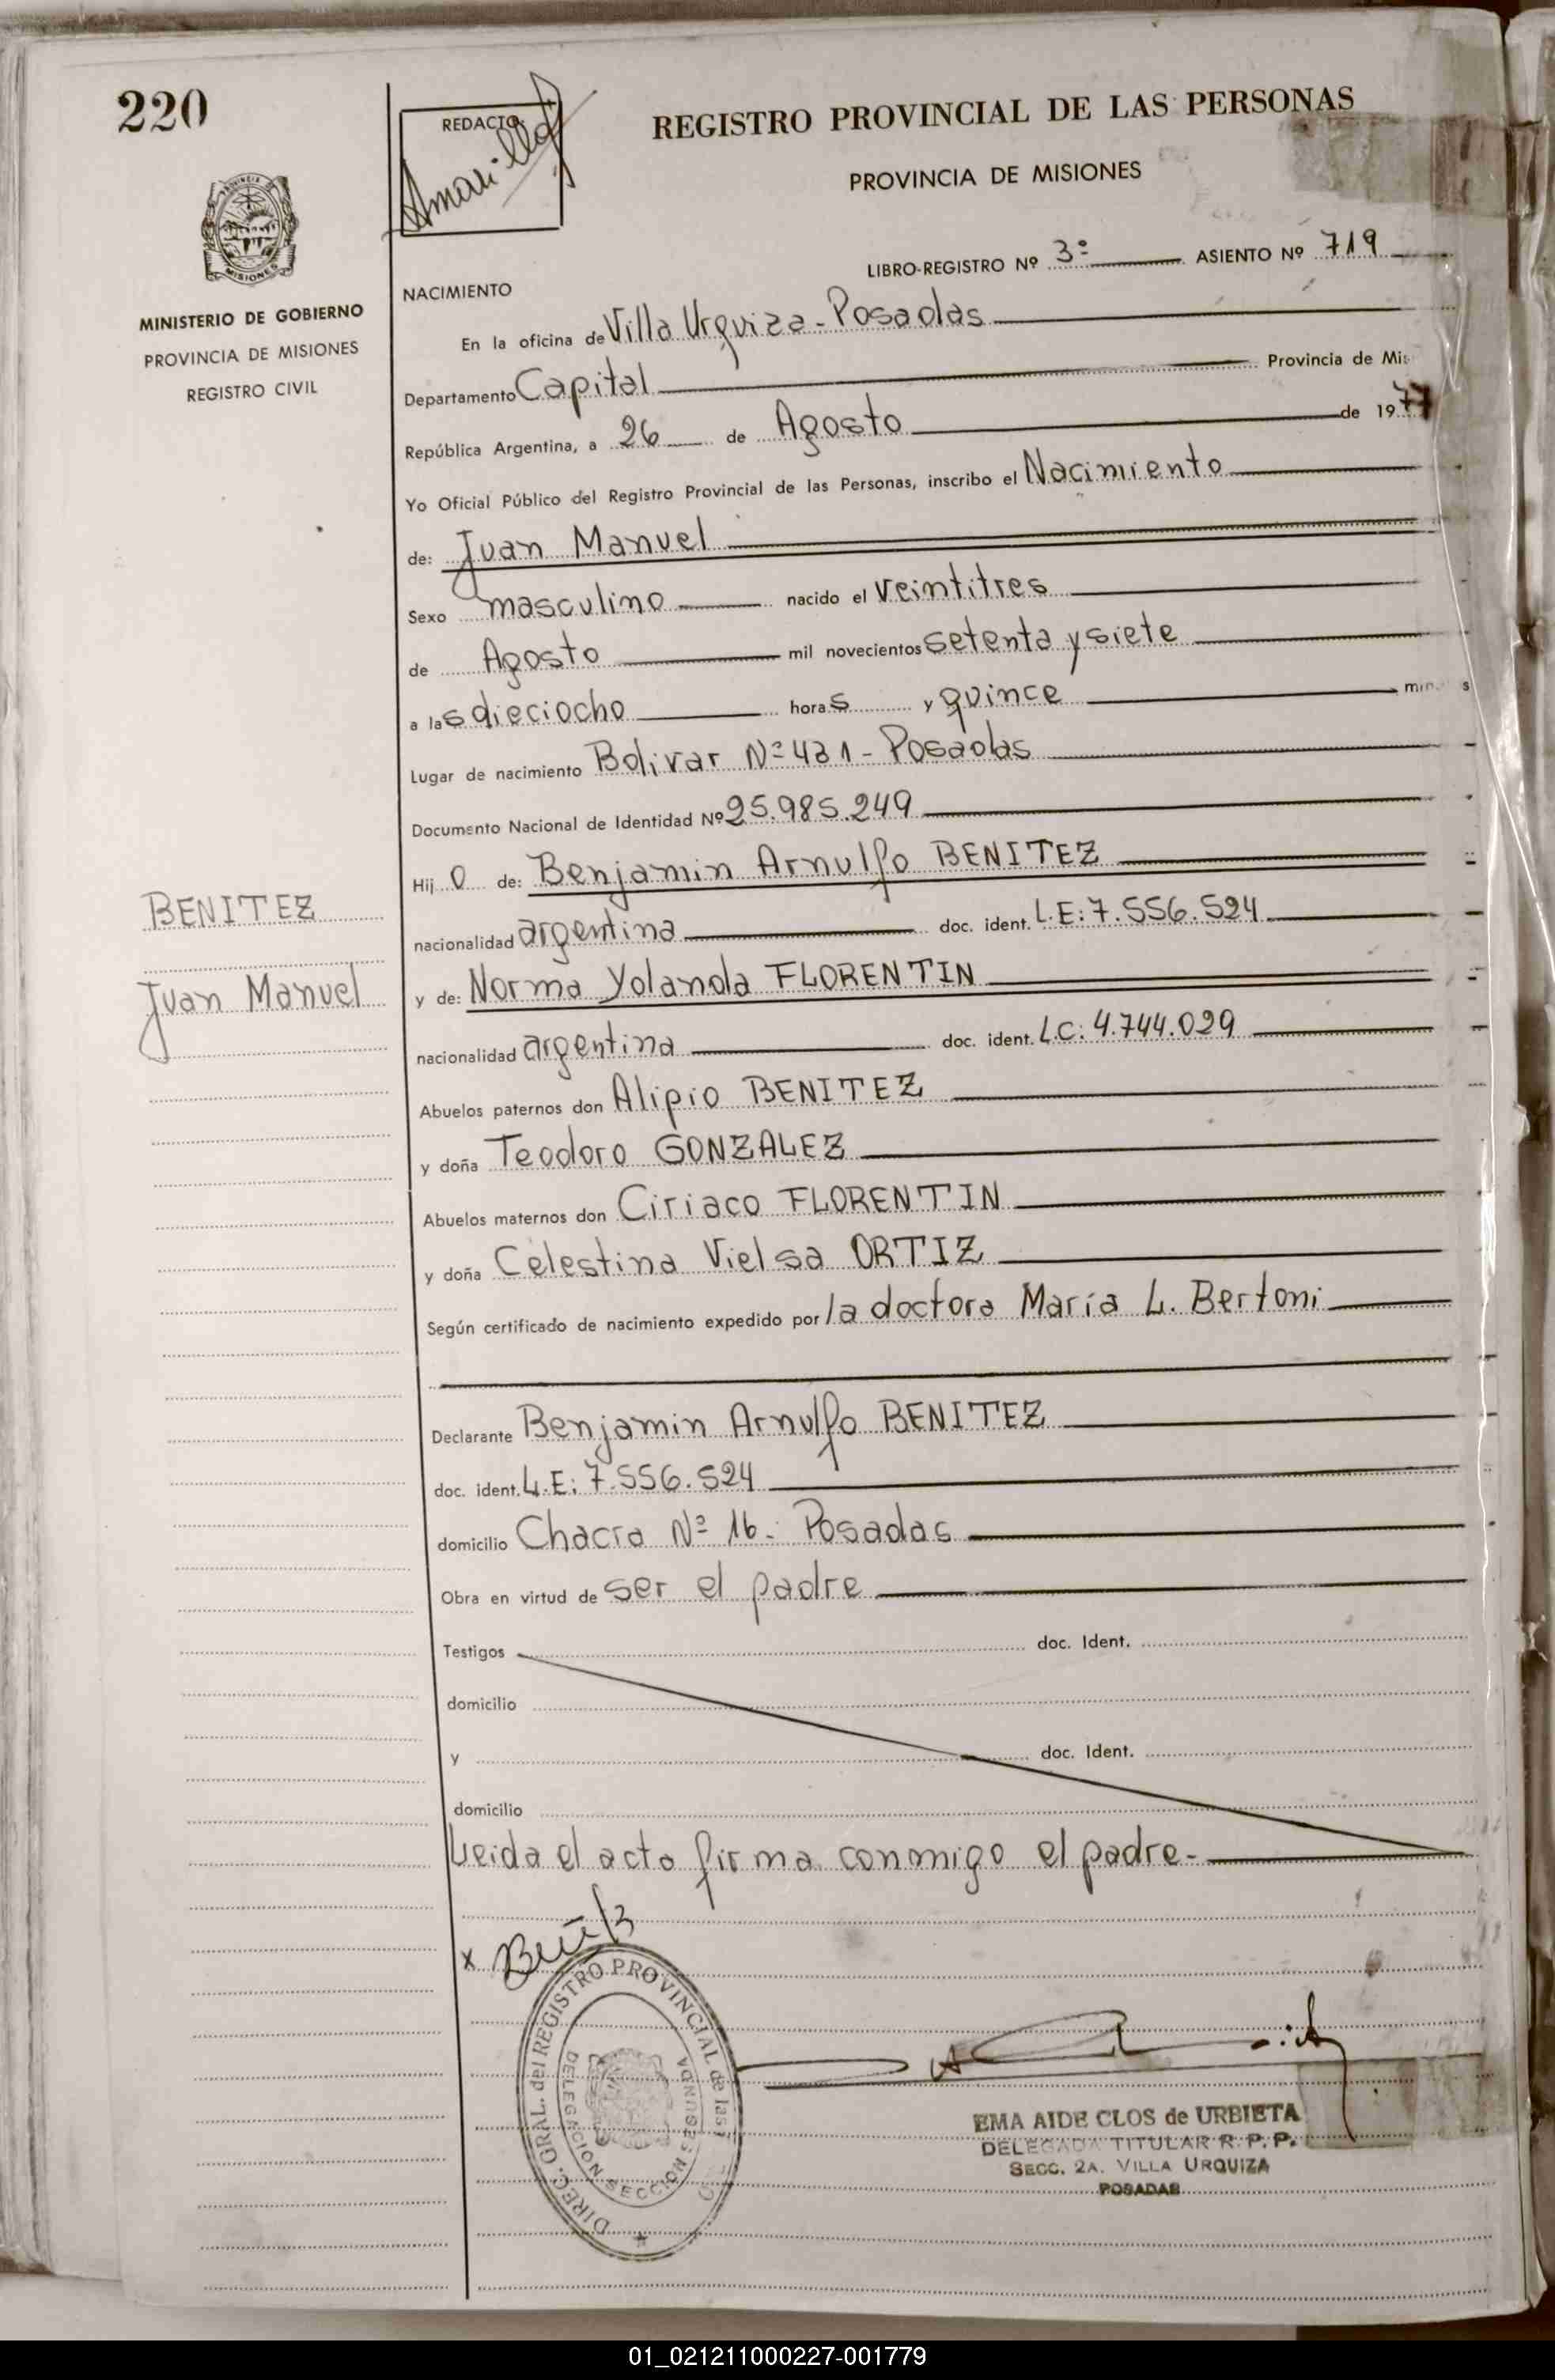 220
REDACTO
Amarilla
REGISTRO PROVINCIAL DE LAS PERSONAS
PROVINCIA DE MISIONES
LIBRO-REGISTRO Nº 3º ASIENTO Nº 719
MISIONES
MINISTERIO DE GOBIERNO
PROVINCIA DE MISIONES
REGISTRO CIVIL
NACIMIENTO
En la oficina de Villa Urquiza - Posadas
Departamento Capital Provincia de Mis
República Argentina, a 26 de Agosto de 1977
Yo Oficial Público del Registro Provincial de las Personas, inscribo el Nacimiento
de: Juan Manuel
Sexo masculino nacido el veintitres
de Agosto mil novecientos setenta y siete
a las dieciocho horas y quince min s
Lugar de nacimiento Bolivar Nº 431 - Posadas
Documento Nacional de Identidad Nº 25.985.249
Hijo de: Benjamin Arnulfo BENITEZ
BENITEZ
nacionalidad argentina doc. ident. L.E: 7.556.524
Juan Manuel
y de: Norma Yolanda FLORENTIN
nacionalidad argentina doc. ident. L.C: 4.744.029
Abuelos paternos don Alipio BENITEZ
y doña Teodoro GONZALEZ
Abuelos maternos don Ciriaco FLORENTIN
y doña Celestina Vielsa ORTIZ
Según certificado de nacimiento expedido por la doctora María L. Bertoni
Declarante Benjamin Arnulfo BENITEZ
doc. ident. L.E: 7.556.524
domicilio Chacra Nº 16 - Posadas
Obra en virtud de ser el padre
Testigos doc. Ident.
domicilio
y doc. Ident.
domicilio
Leida el acto firma conmigo el padre -
x
DIREC. GRAL. del REGISTRO PROVINCIAL de las
DELEGACION SECCION SEGUNDA
EMA AIDE CLOS de URBIETA
DELEGADA TITULAR R. P. P.
SECC. 2A. VILLA URQUIZA
POSADAS
01_021211000227-001779